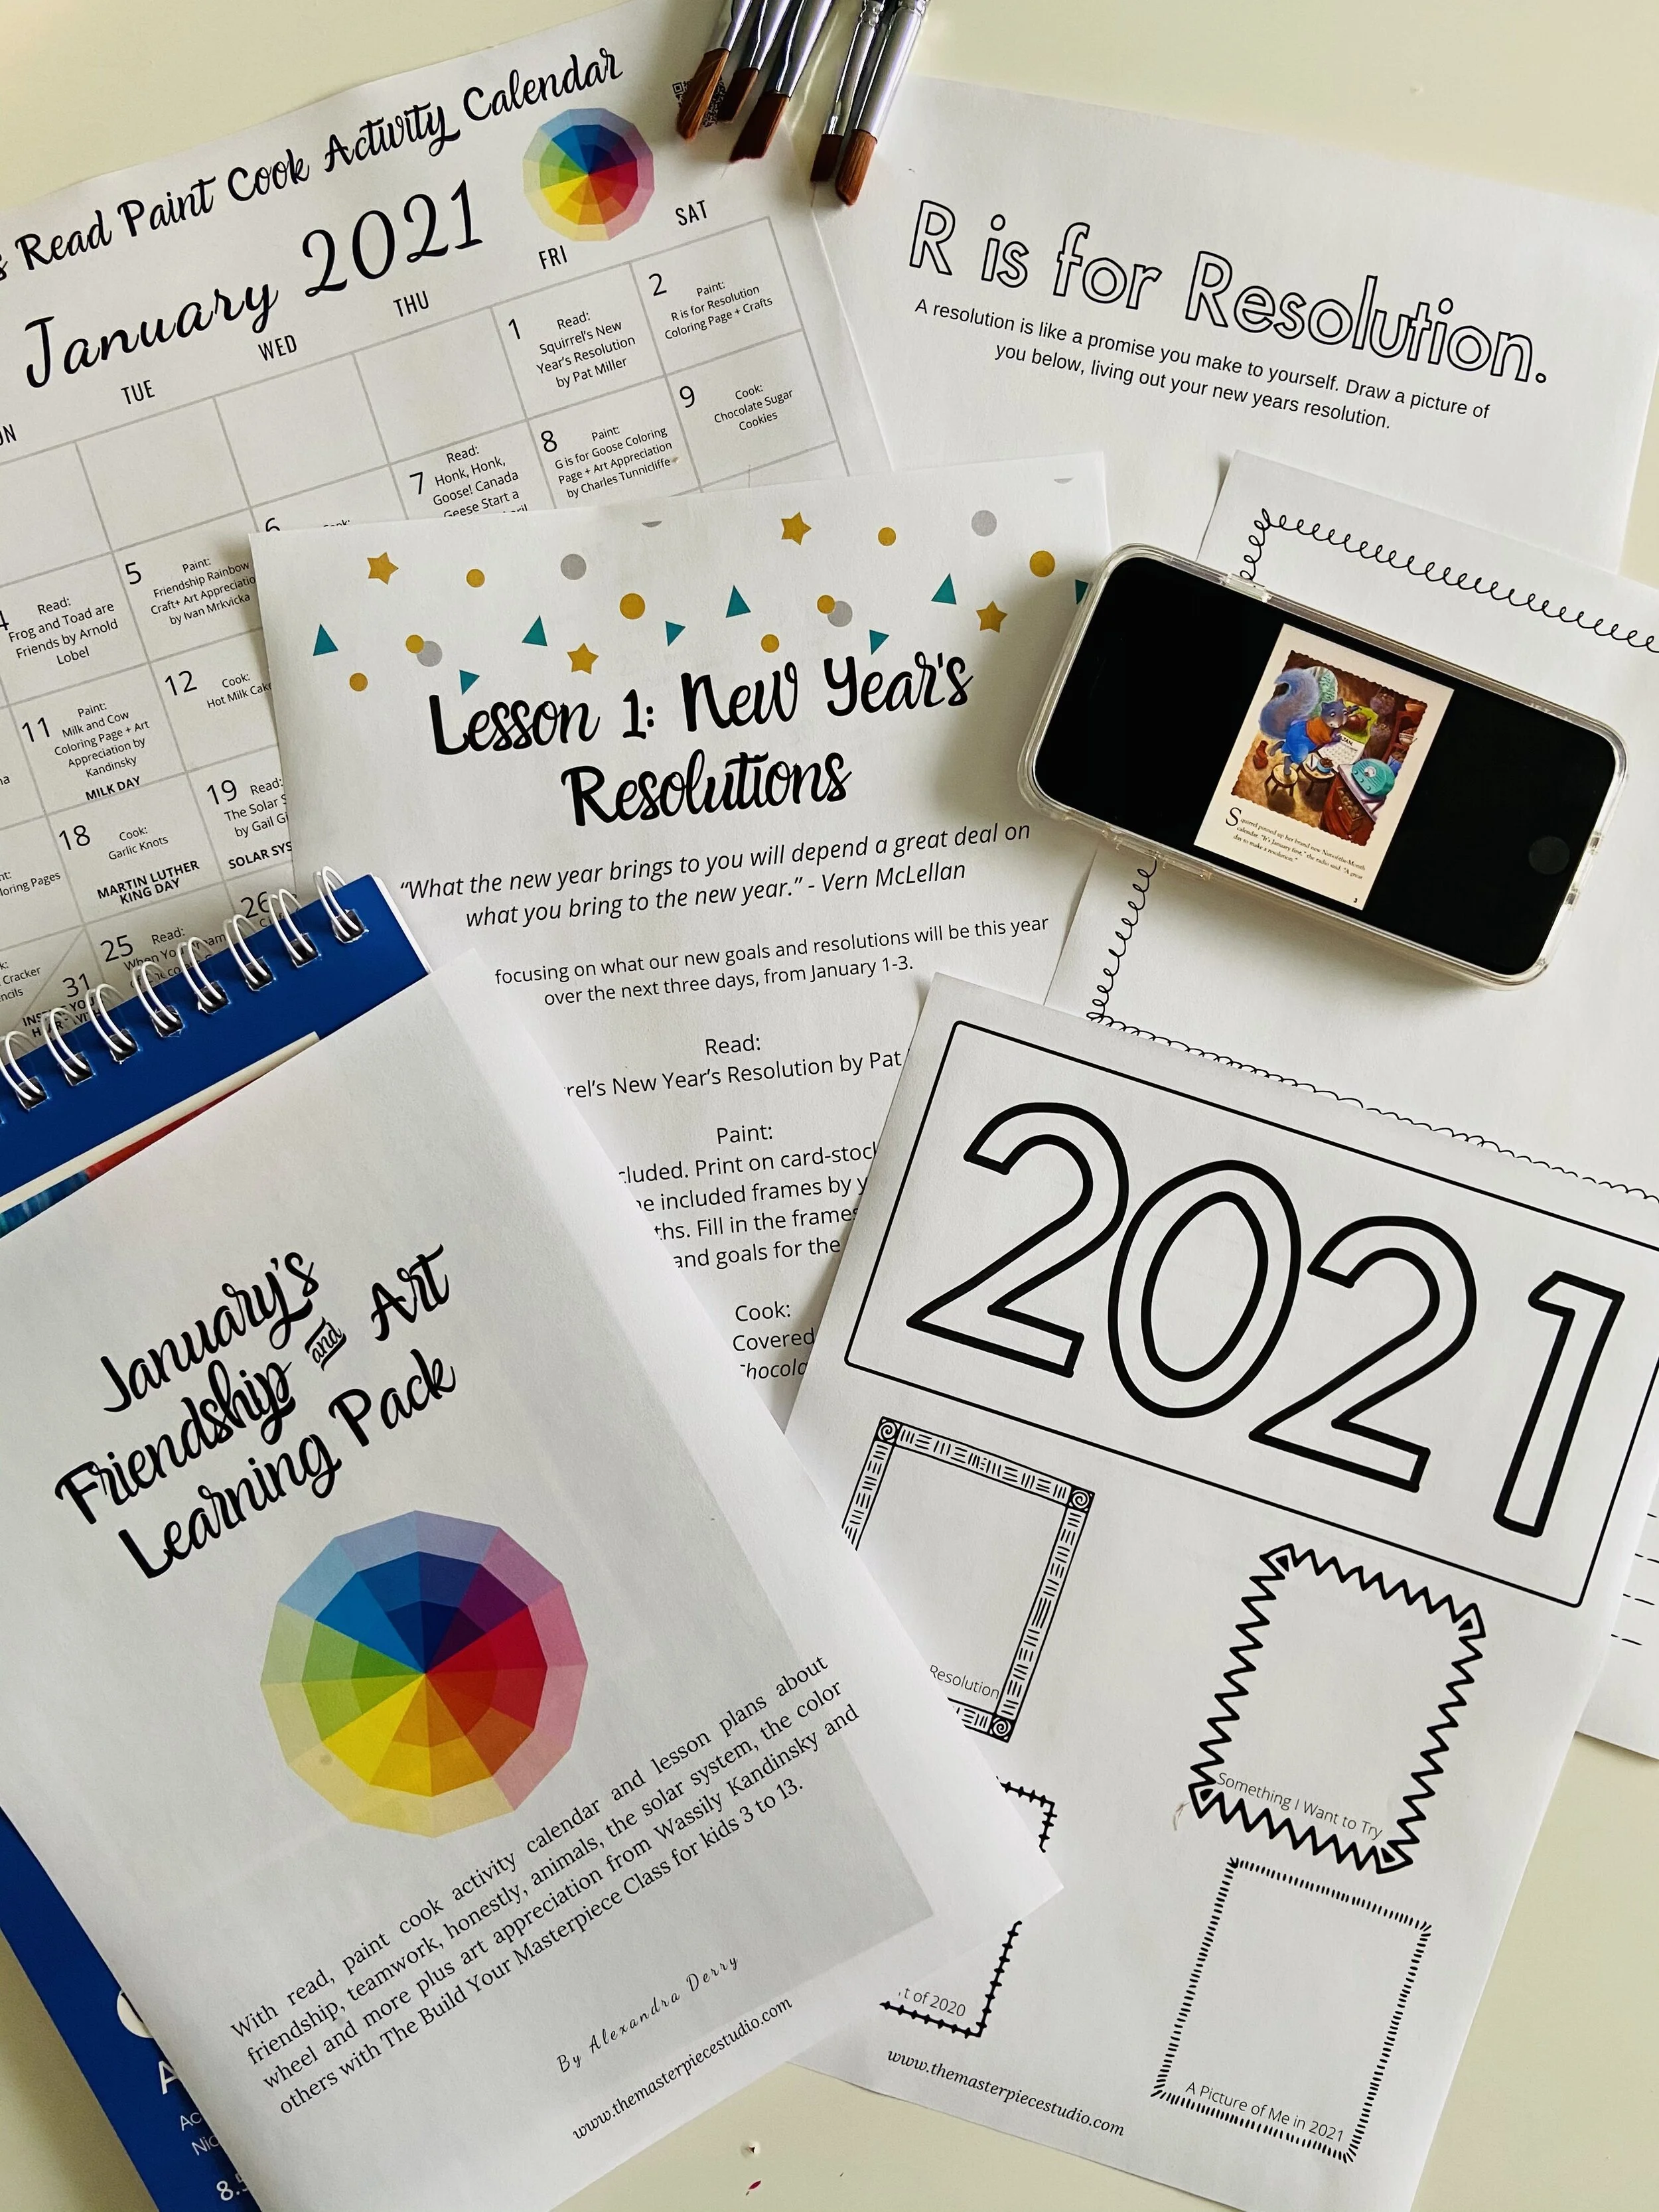 Read Paint Cook Activity Calendar
January 2021
TUE
WED
THU
FRI
SAT
1
Read:
Squirrel's New
Year's Resolution
by Pat Miller
2
Paint:
R is for Resolution
Coloring Page + Crafts
Read:
Frog and Toad are
Friends by Arnold
Lobel
5
Paint:
Friendship Rainbow
Craft+ Art Appreciatio
by Ivan Mrkvicka
6
7
Read:
Honk, Honk,
Goose! Canada
Geese Start a
8
Paint:
G is for Goose Coloring
Page + Art Appreciation
by Charles Tunnicliffe
9
Cook:
Chocolate Sugar
Cookies
11
Paint:
Milk and Cow
Coloring Page + Art
Appreciation by
Kandinsky
MILK DAY
12
Cook:
Hot Milk Cake
18
Cook:
Garlic Knots
MARTIN LUTHER
KING DAY
19
Read:
The Solar S
by Gail Gi
SOLAR SYS
oring Pages
25
Read:
26
31
Cracker
ncils
R is for Resolution.
A resolution is like a promise you make to yourself. Draw a picture of
you below, living out your new years resolution.
Lesson 1: New Year's
Resolutions
“What the new year brings to you will depend a great deal on
what you bring to the new year.” - Vern McLellan
focusing on what our new goals and resolutions will be this year
over the next three days, from January 1-3.
Read:
rel’s New Year’s Resolution by Pat
Paint:
cluded. Print on card-stock
e included frames by y
ths. Fill in the frames
and goals for the
Cook:
Covered
Chocola
JAN
Squirrel pinned up her brand new Nut-of-the-Month
calendar. "It's January first," the radio said. "A great
day to make a resolution."
3
2021
Resolution
Something I Want to Try
t of 2020
A Picture of Me in 2021
www.themasterpiecestudio.com
January's
Friendship and Art
Learning Pack
With read, paint cook activity calendar and lesson plans about
friendship, teamwork, honestly, animals, the solar system, the color
wheel and more plus art appreciation from Wassily Kandinsky and
others with The Build Your Masterpiece Class for kids 3 to 13.
By Alexandra Derry
www.themasterpiecestudio.com
A
Ac
Nic
8.5